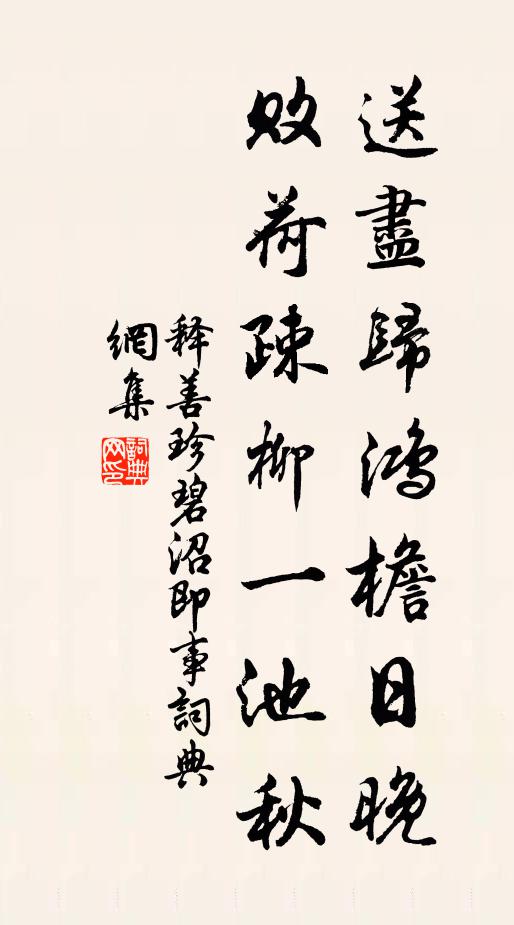 送盡歸鴻檐日晚
敗荷疎柳一池秋
释善珍碧沼即事詞典
網集
詞典網印